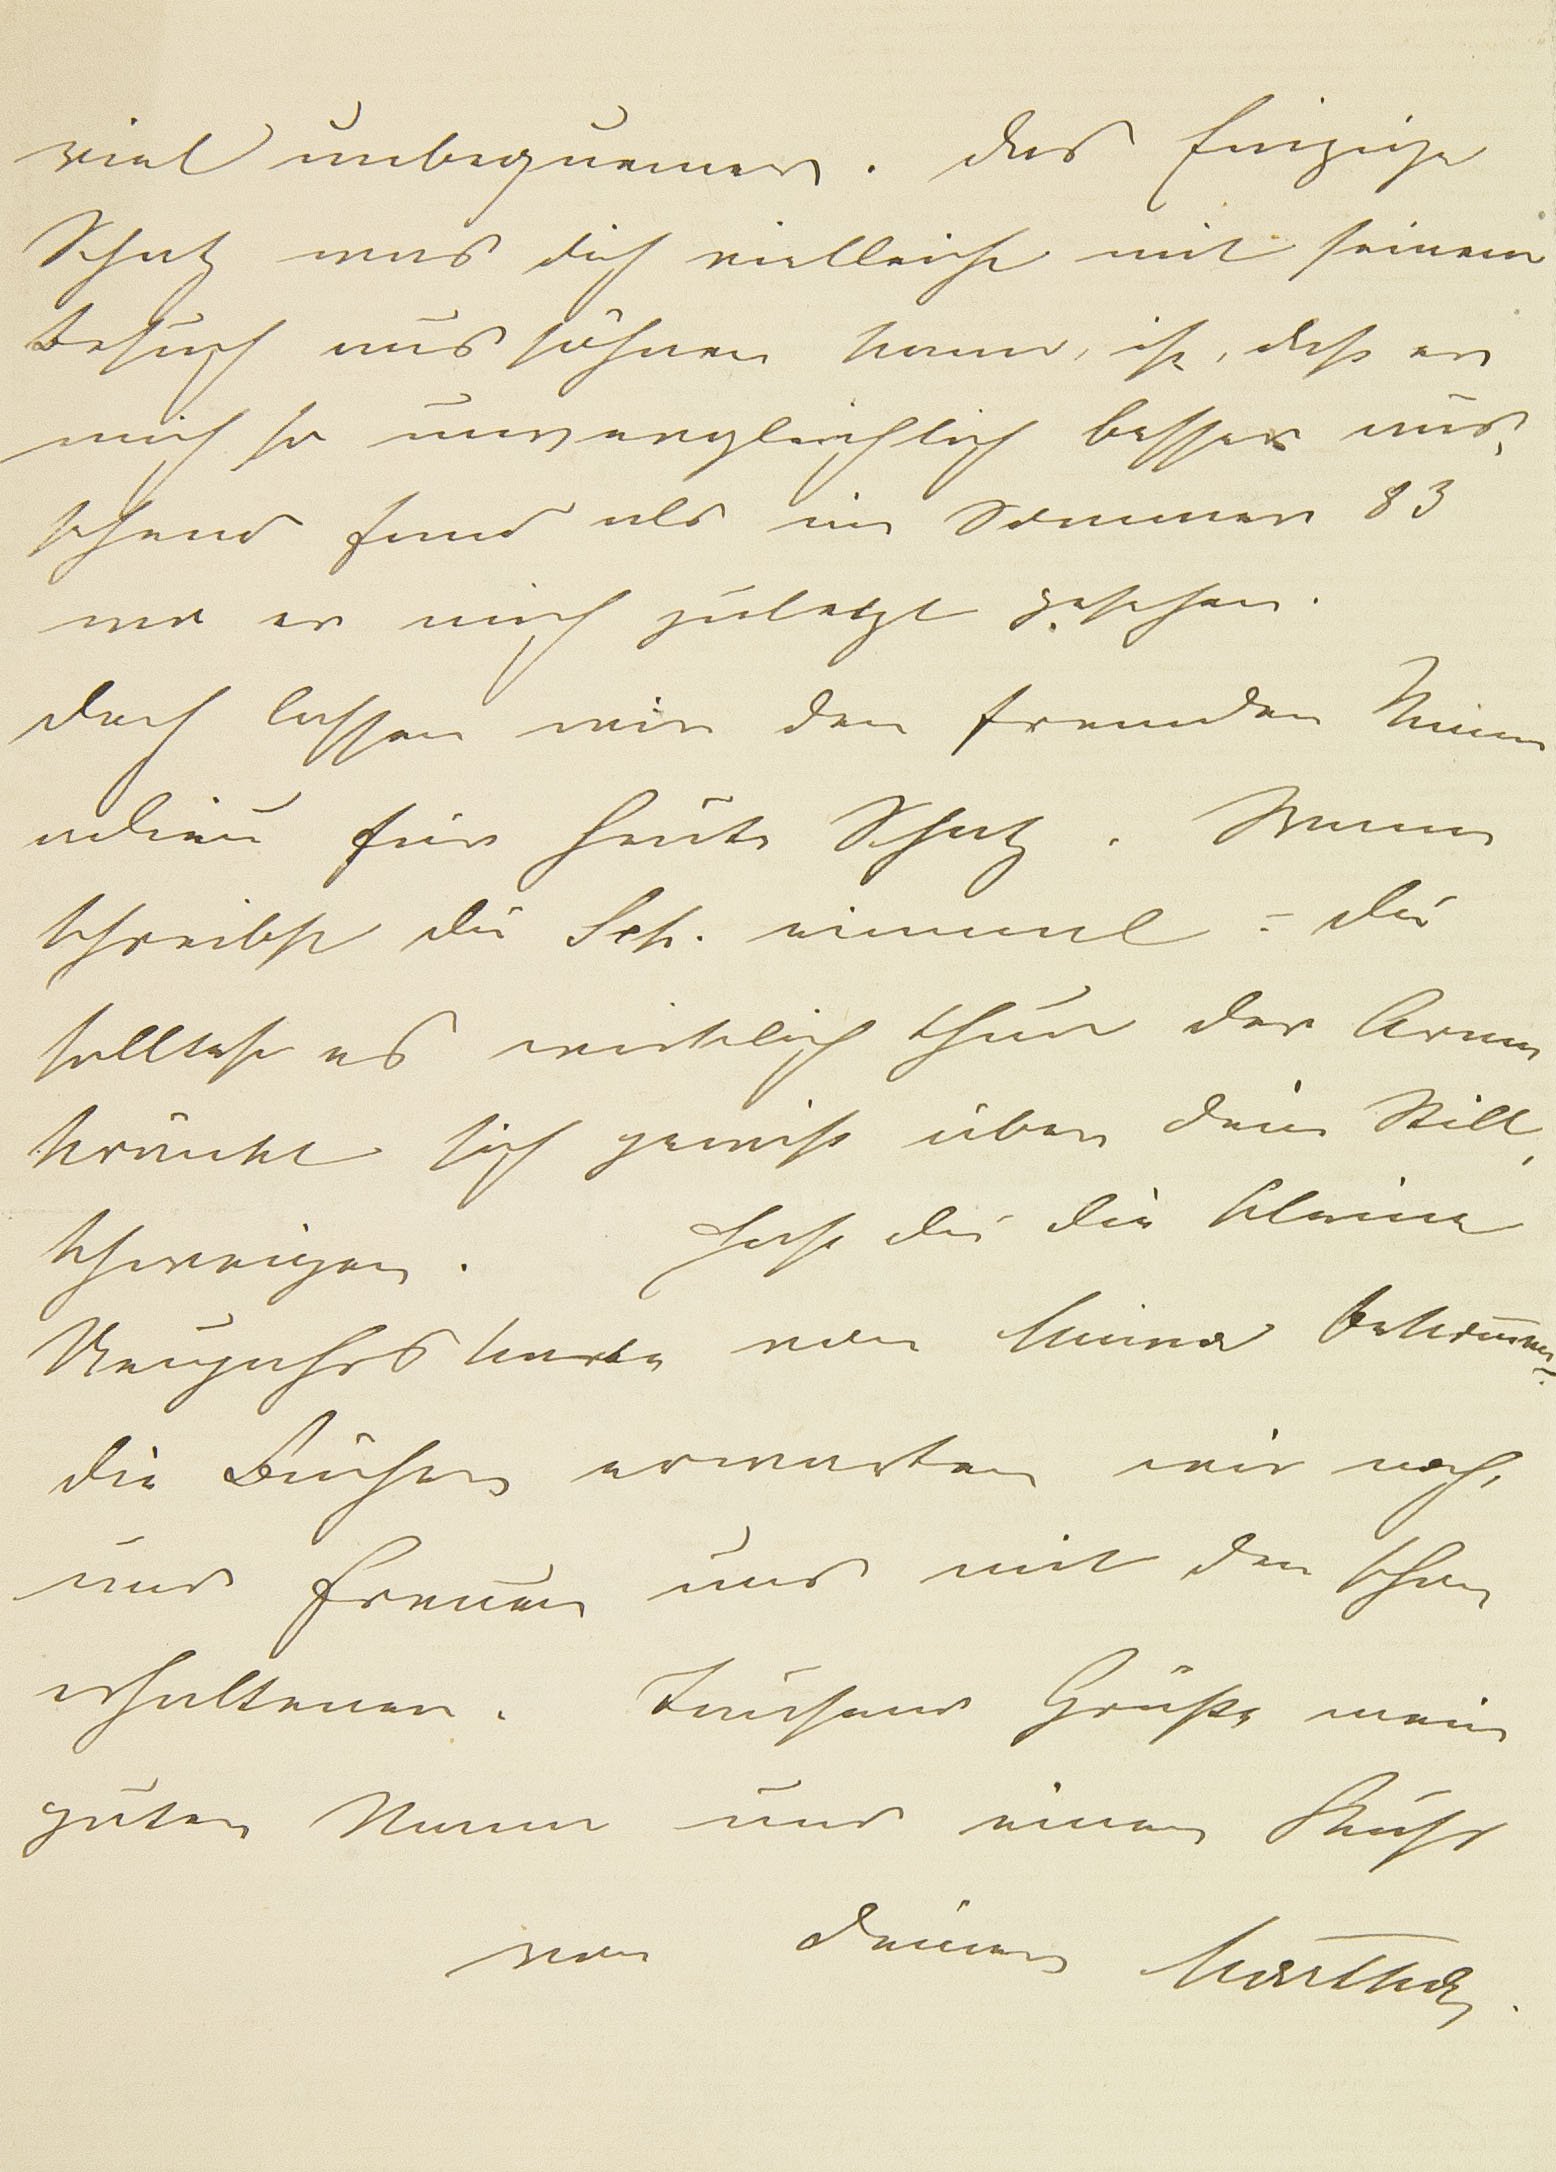 viel unbequemer. das Einzige
Schatz was dich vielleicht mit seinem
Besuch aussöhnen kann, ist, daß er
mich so unvergleichlich besser aus,
sehend fand als im Sommer 83
wo er mich zuletzt gesehen.
doch lassen wir den fremden Mann
adieu für heute Schatz. Wann
schreibst du Sch. einmal - du
solltest es wirklich thun der Arme
kränkt sich gewiß über dein Still,
schweigen. Hast du die kleine
Neujahrskarte von Minna bekommen?
die Bücher erwarten wir noch,
und freuen uns mit den schon
erhaltenen. Tausend Grüße mein
guter Mann und einen Kuß
von deiner Martha.